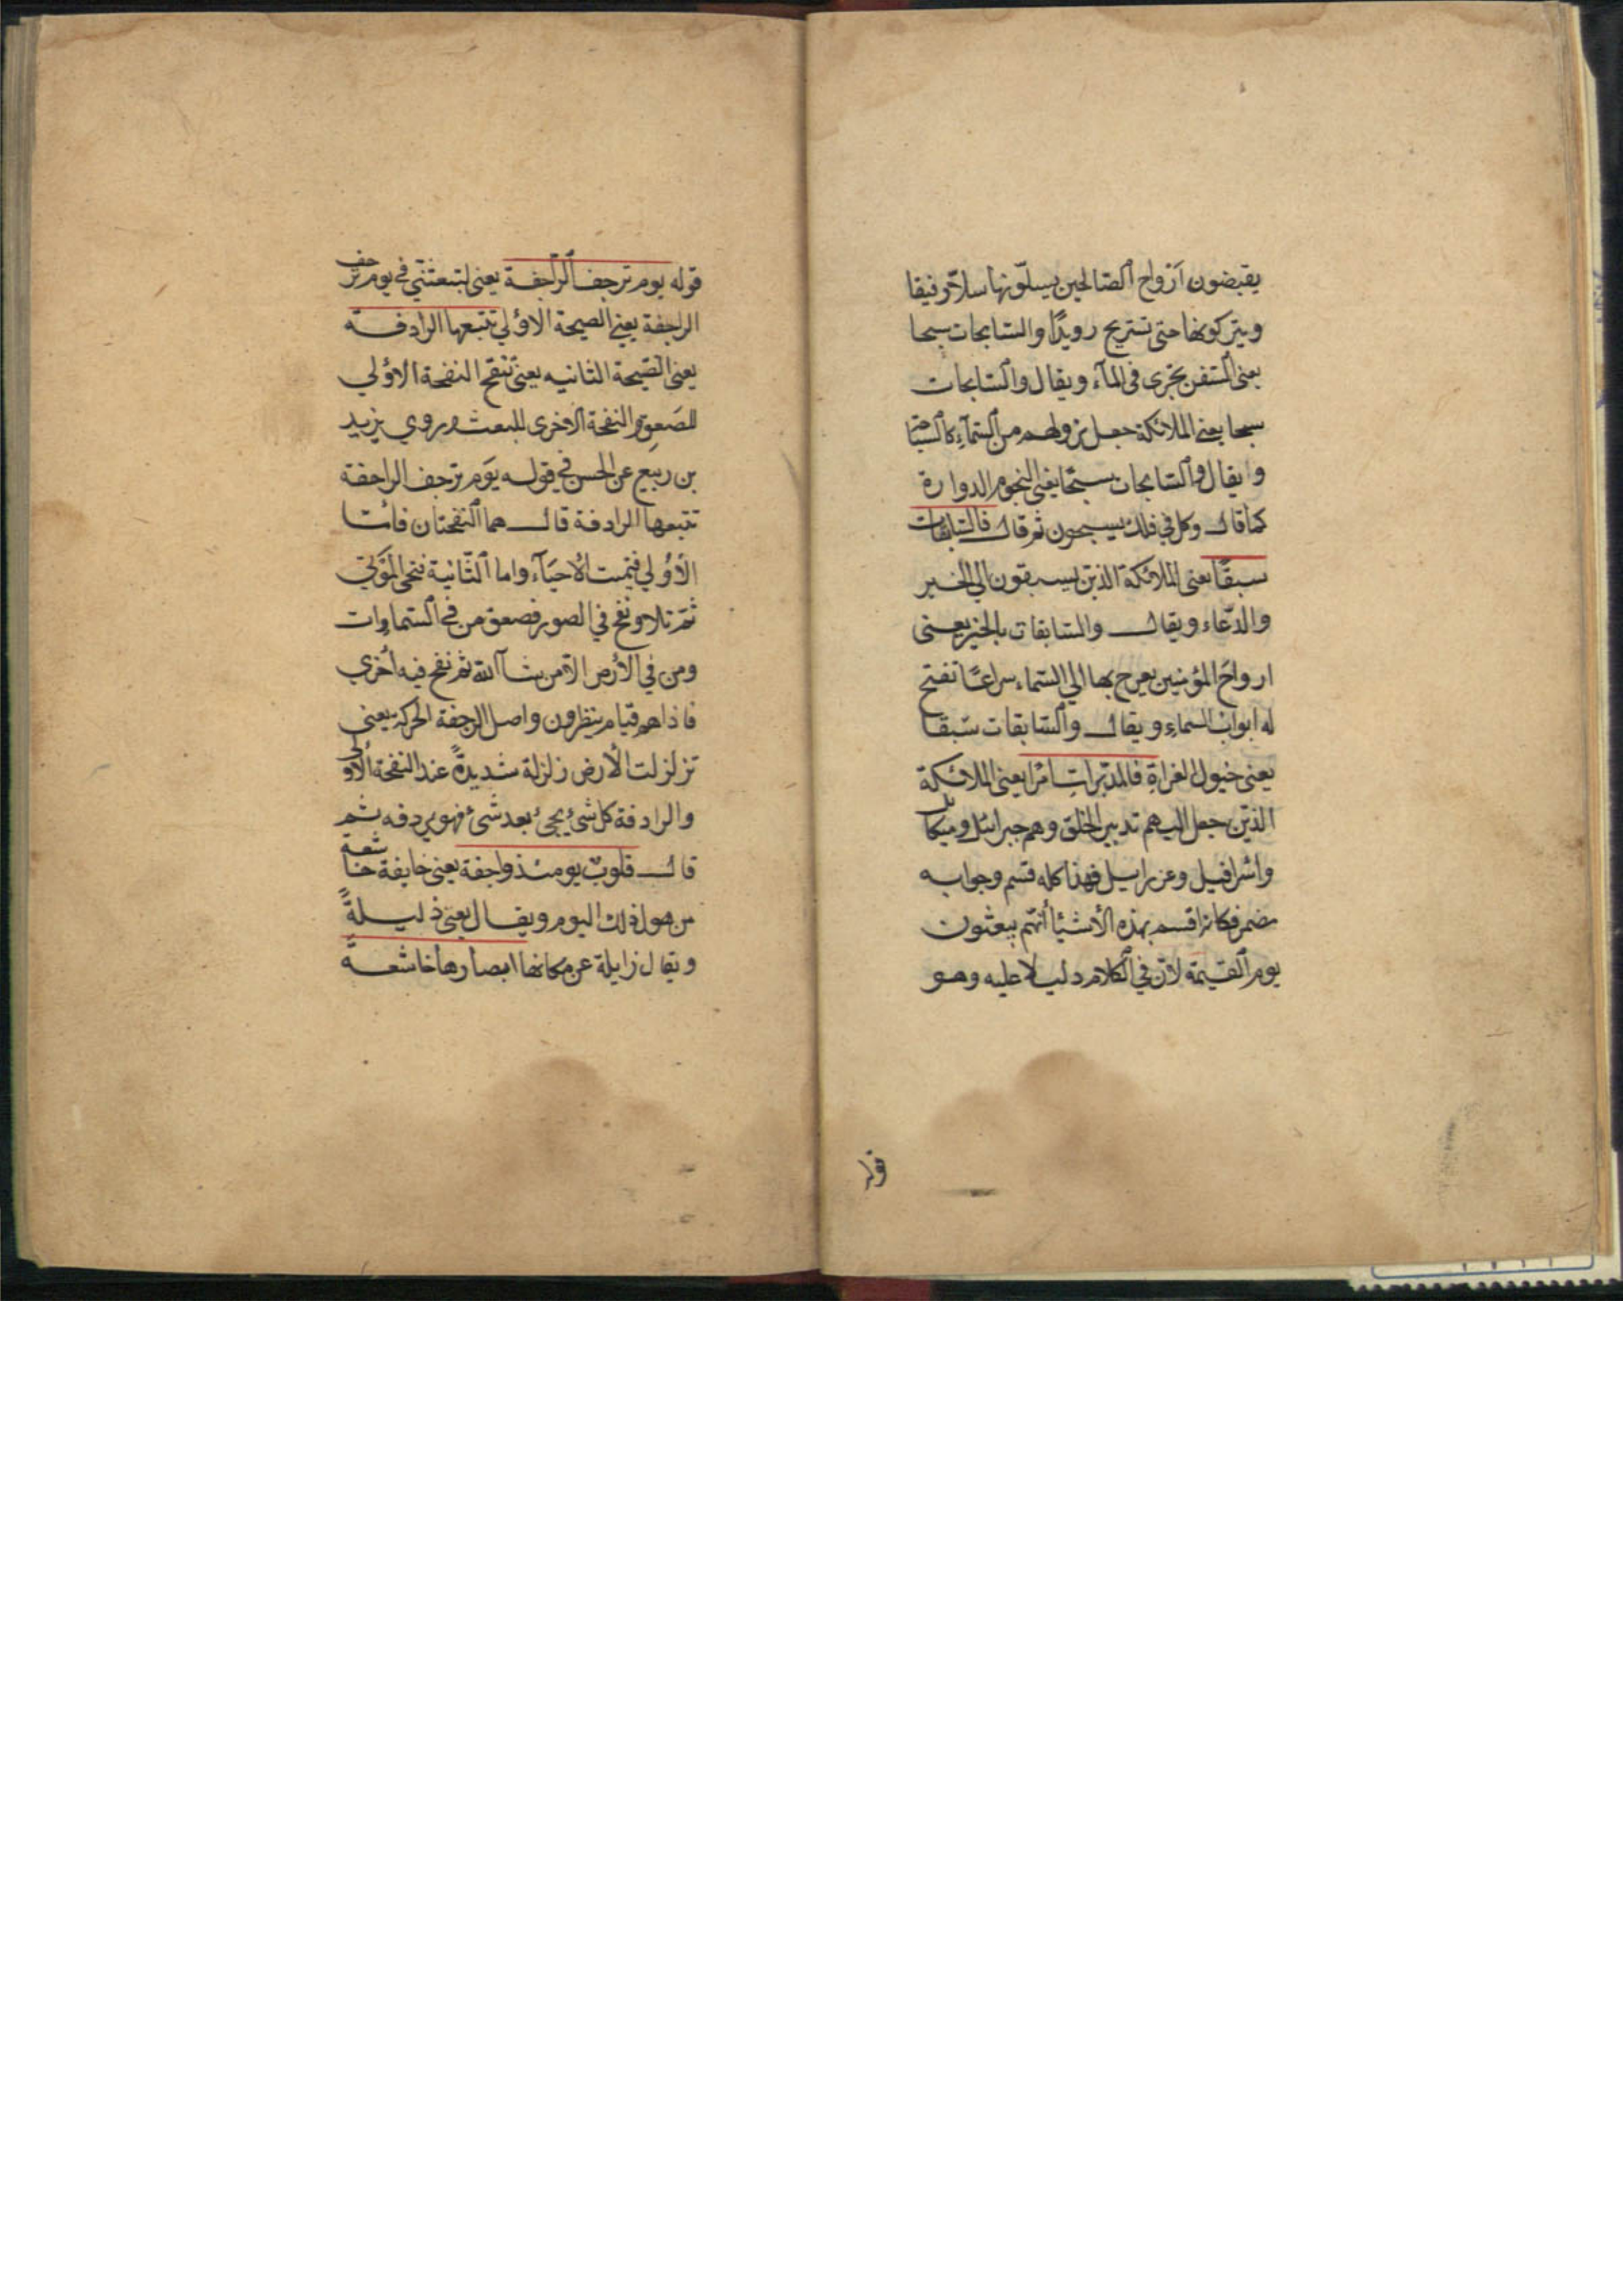 يقبضون ارواح الصالحين يسلّونها سلّا رفيقا
ويتركونها حتى تستريح رويدًا والسّابحات سبحا
يعنى السّفن تجرى فى المآء ويقال والسّابحات
سبحا يعنى الملائكة جعل نزولهم من السّمآء كالسّباحة
وايقال والسّابحات سبحًا يعنى النجوم الدوارة
كما قال وكل في فلك يسبحون ثم قال فالسّابقات
سبقًا يعنى الملائكة الذين يسبقون الي الخير
والدّعاء ويقال والسّابقات بالخير يعنى
ارواحَ المؤمنين يعرج بها الي السّماء سراعًا تفتح
له ابواب السماء ويقال والسّابقات سبقا
يعنى خيول الغزاةِ فالمدبّراتِ امْرا يعنى الملائكة
الذين جعل اليهم تدبير الخلق وهم جبرائيل وميكائل
واسْرافيل وعزراييل فهذا كله قسم وجوابه
مضمر فكانه اقسم بهذه الأشئا أنّهم يبعثون
يوم القيمة لانّ في الكلام دليلا عليه وهو
قوله
قوله يوم ترجف الرّاجفة يعنى لتبعثنّ في يوم ترجف
الراجفة يعنى الصيحة الاؤلي تتبعها الرادفة
يعنى الصّيحة الثانيه يعنى تنفخ النفخة الاؤلي
للصَعِق والنفخة الاخرى للبعث وروي يزيد
بن ربيع عن الحسن في قوله يَوم ترجف الراجفة
تتبعها الرادفة قال هما النّفختان فامّا
الأؤلي فتميت الأحيَآء واما الثّانية فتحى المَوْتي
ثمّ تلا ونفخ في الصور فصعق من في السّماوات
ومن في الأرض الاّ من شآ الله ثم نفخ فيه أخري
فاذا هم قيام ينظرون واصل الرجفة الحركة يعنى
تزلزلت الأرض زلزلة شديدةً عند النفخة الأولي
والرادفة كل شئ يجئ بعد شئ فهو يردفه ثم
قال قلوبٌ يومئذ واجفة يعنى خايفة خاشعة
من هول ذلك اليوم ويقال يعنى ذليلةً
ويقال زايلة عن مكانها ابصارها خاشعةً